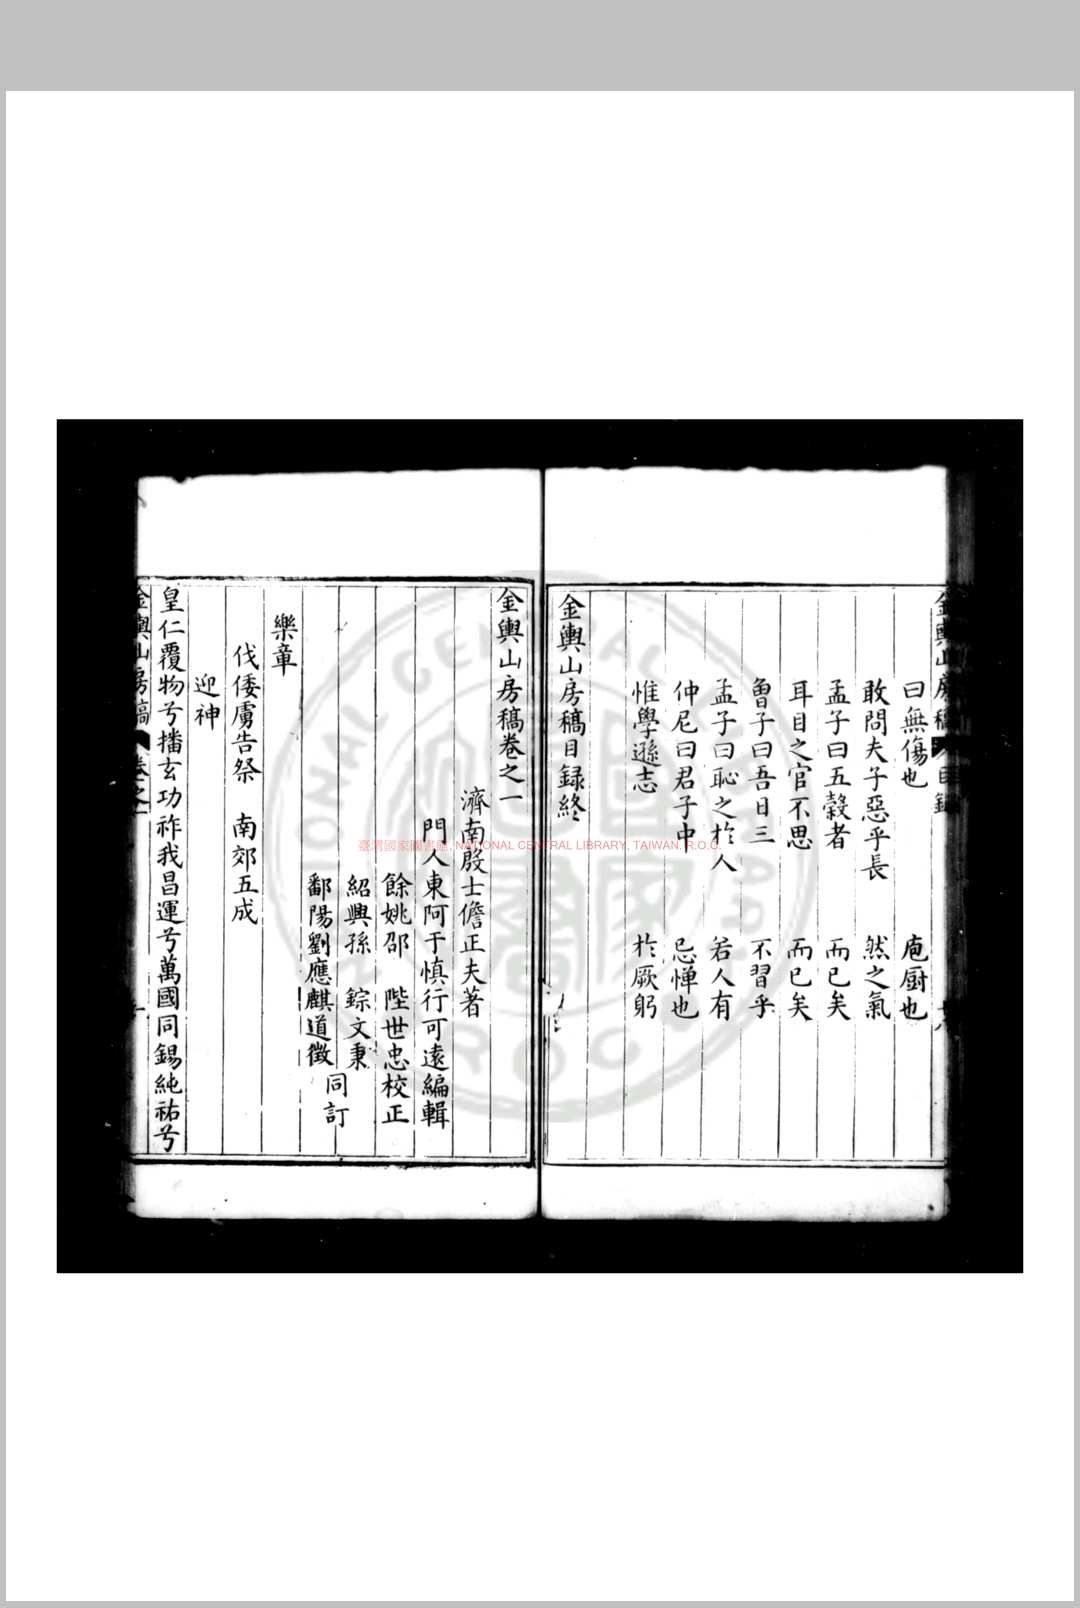 金輿山房稿 目錄
曰無傷也 庖厨也
敢問夫子惡乎長 然之氣
孟子曰五穀者 而已矣
耳目之官不思 而已矣
魯子曰吾日三 不習乎
孟子曰恥之於人 若人有
仲尼曰君子中 忌憚也
惟學遜志 於厥躬
金輿山房稿目録終
金輿山房稿卷之一
濟南殷士儋正夫著
門人東阿于慎行可遠編輯
餘姚邵 陛世忠校正
紹興孫 錝文秉
鄱陽劉應麒道徵
同訂
樂章
伐倭虜告祭 南郊五成
迎神
皇仁覆物兮播玄功祚我昌運兮萬國同錫純祐兮
金輿山房稿 卷之一 一
臺灣國家圖書館, NATIONAL CENTRAL LIBRARY, TAIWAN, R.O.C.